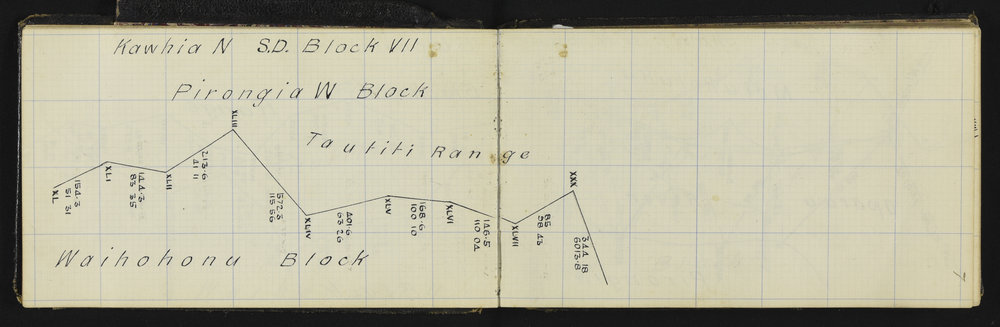 Kawhia N S.D. Block VII
Pirongia W Block
Tautiti Range
XL
154.3
51 31
XLI
144.3
83 35
XLII
213.6
41 11
XLIII
572.3
115 56
XLIV
401.6
63 26
XLV
168.6
100 10
XLVI
146.5
110 04
XLVII
85
58 43
XXX
344 18
6013.8
Waihohonu Block